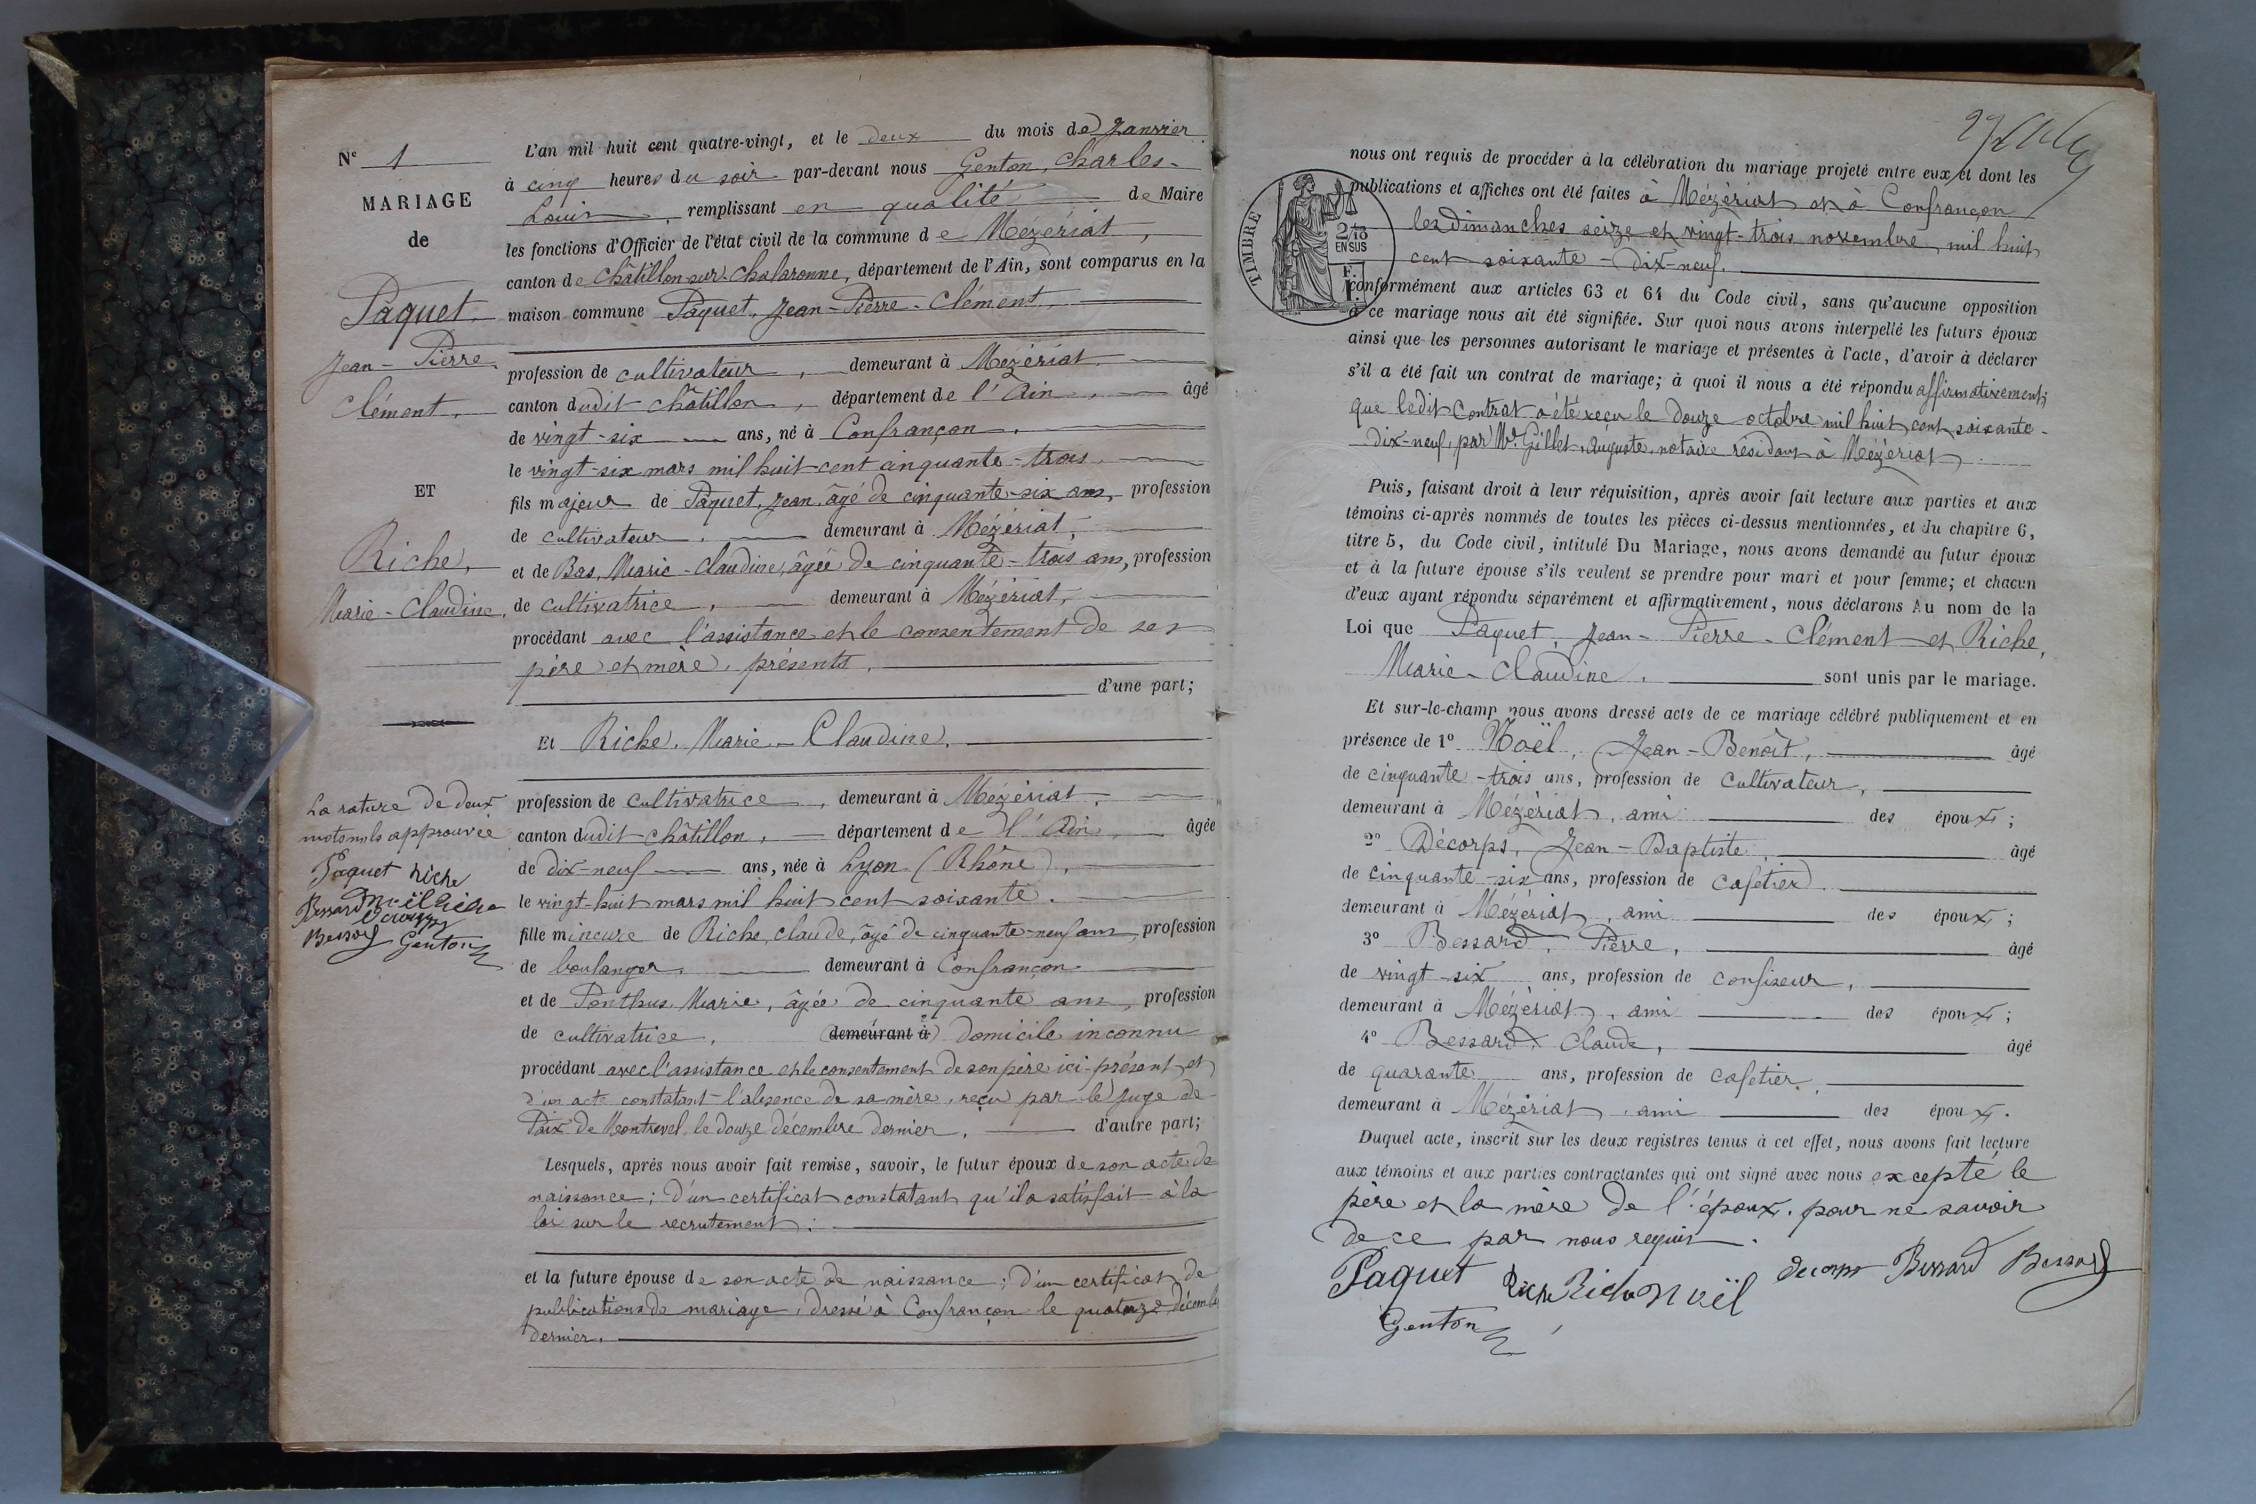 N° 1
MARIAGE
de
Paquet,
Jean-Pierre
Clément,
ET
Riche,
Marie-Claudine,
La rature de deux
mots nuls approuvée
Paquet Riche
Bessard Noël Riche
Decorps
Bessard Genton
L'an mil huit cent quatre-vingt, et le deux du mois de Janvier
à cinq heures du soir par-devant nous Genton, Charles-
Louis, remplissant en qualité de Maire
les fonctions d'Officier de l'état civil de la commune de Mézériat,
canton de Châtillon-sur-Chalaronne, département de l'Ain, sont comparus en la
maison commune Paquet, Jean-Pierre-Clément,
profession de cultivateur, demeurant à Mézériat
canton dudit Châtillon, département de l'Ain, âgé
de vingt-six ans, né à Confrançon,
le vingt-six mars mil huit cent cinquante-trois
fils majeur de Paquet, Jean, âgé de cinquante-six ans, profession
de cultivateur, demeurant à Mézériat,
et de Bas, Marie-Claudine, âgée de cinquante-trois ans, profession
de cultivatrice, demeurant à Mézériat,
procédant avec l'assistance et le consentement de ses
père et mère, présents,
d'une part;
Et Riche, Marie-Claudine,
profession de cultivatrice, demeurant à Mézériat,
canton dudit Châtillon, département de l'Ain, âgée
de dix-neuf ans, née à Lyon (Rhône),
le vingt-huit mars mil huit cent soixante.
fille mineure de Riche, Claude, âgé de cinquante-neuf ans, profession
de boulanger, demeurant à Confrançon
et de Ponthus, Marie, âgée de cinquante ans, profession
de cultivatrice, demeurant à domicile inconnu
procédant avec l'assistance et le consentement de son père ici présent, et
d'un acte constatant l'absence de sa mère, reçu par le Juge de
Paix de Montrevel, le douze décembre dernier, d'autre part;
Lesquels, après nous avoir fait remise, savoir, le futur époux de son acte de
naissance; d'un certificat constatant qu'il a satisfait à la
loi sur le recrutement;
et la future épouse de son acte de naissance; d'un certificat de
publications de mariage, dressé à Confrançon le quatorze décembre
dernier.
nous ont requis de procéder à la célébration du mariage projeté entre eux et dont les
publications et affiches ont été faites à Mézériat et à Confrançon
les dimanches seize et vingt-trois novembre mil huit
cent soixante-dix-neuf.
TIMBRE
2/10
EN SUS
conformément aux articles 63 et 64 du Code civil, sans qu'aucune opposition
à ce mariage nous ait été signifiée. Sur quoi nous avons interpellé les futurs époux
ainsi que les personnes autorisant le mariage et présentes à l'acte, d'avoir à déclarer
s'il a été fait un contrat de mariage; à quoi il nous a été répondu affirmativement;
que ledit contrat a été reçu le douze octobre mil huit cent soixante-
dix-neuf, par Me. Gillet, Auguste, notaire résidant à Mézériat
Puis, faisant droit à leur réquisition, après avoir fait lecture aux parties et aux
témoins ci-après nommés de toutes les pièces ci-dessus mentionnées, et du chapitre 6,
titre 5, du Code civil, intitulé Du Mariage, nous avons demandé au futur époux
et à la future épouse s'ils veulent se prendre pour mari et pour femme; et chacun
d'eux ayant répondu séparément et affirmativement, nous déclarons Au nom de la
Loi que Paquet, Jean-Pierre-Clément et Riche,
Marie-Claudine, sont unis par le mariage.
Et sur-le-champ nous avons dressé acte de ce mariage célébré publiquement et en
présence de 1° Noël, Jean-Benoît, âgé
de cinquante-trois ans, profession de cultivateur,
demeurant à Mézériat, ami des époux;
2° Décorps, Jean-Baptiste, âgé
de cinquante-six ans, profession de cafetier
demeurant à Mézériat, ami des époux;
3° Bessard, Pierre, âgé
de vingt-six ans, profession de confiseur,
demeurant à Mézériat, ami des époux;
4° Bessard, Claude, âgé
de quarante ans, profession de cafetier,
demeurant à Mézériat, ami des époux.
Duquel acte, inscrit sur les deux registres tenus à cet effet, nous avons fait lecture
aux témoins et aux parties contractantes qui ont signé avec nous excepté le
père et la mère de l'époux, pour ne savoir
de ce par nous requis.
Paquet Riche Riche Noël Decorps Bessard Bessard
Genton